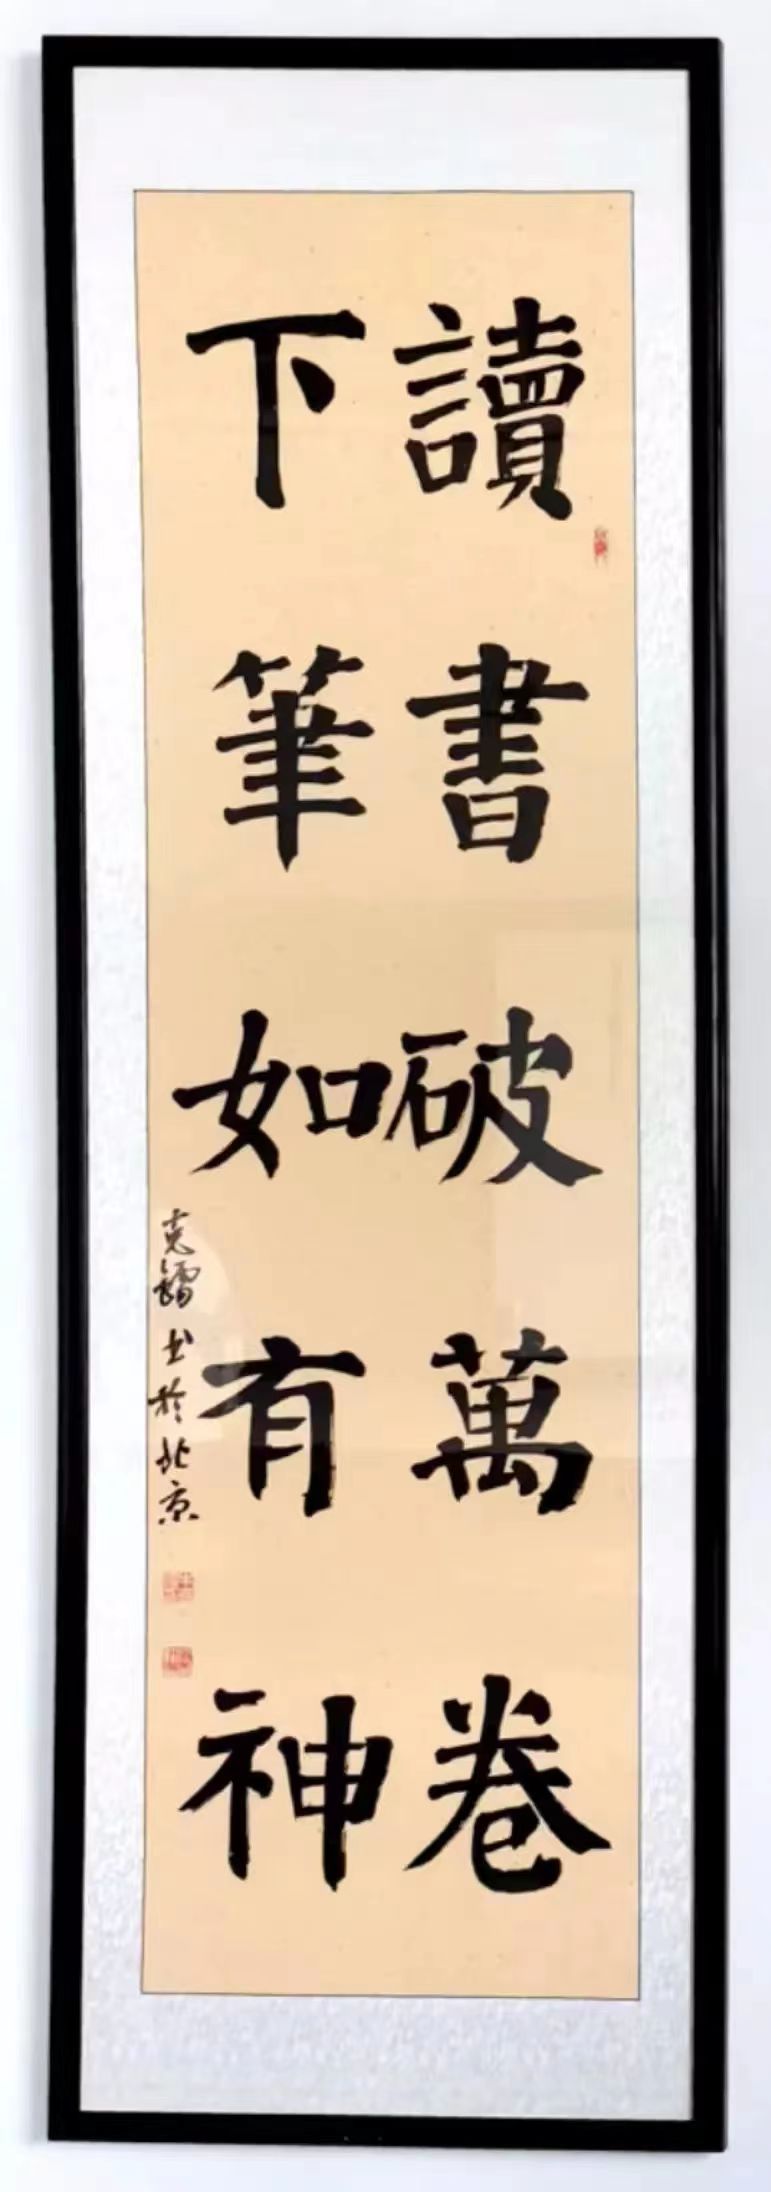 讀書破萬卷
下筆如有神
克鐳书於北京